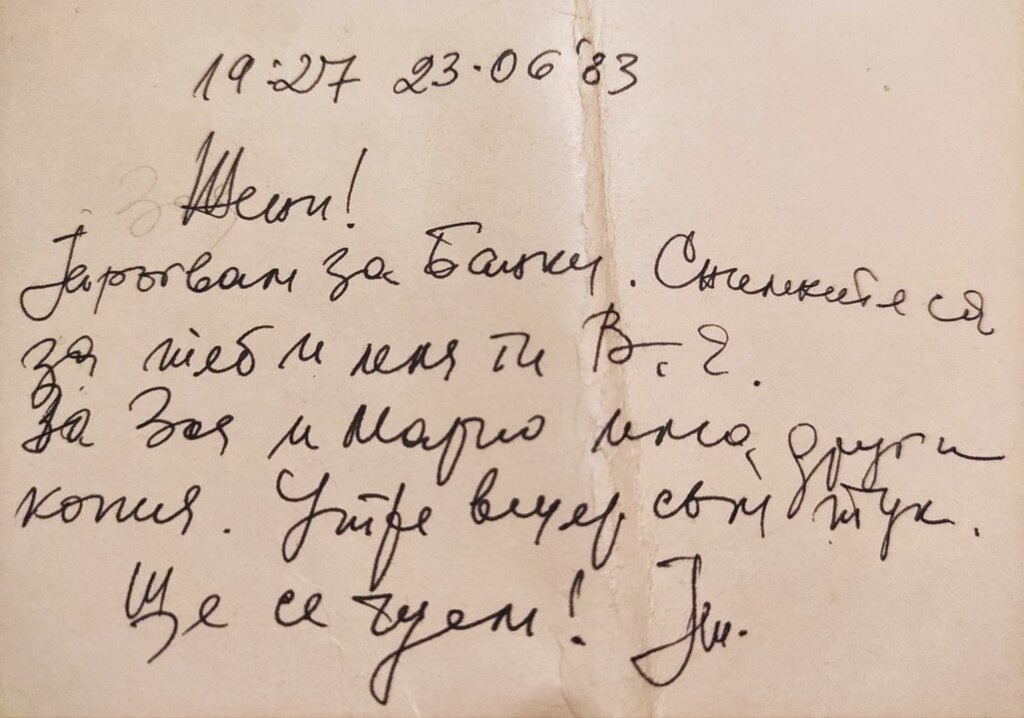 19:27 23.06'83
Шеши!
Тръгвам за Банки. Снимките са
за теб и мен
За Зоя и Марио има други
копия. Утре вечер съм тук.
Ще се чуем!